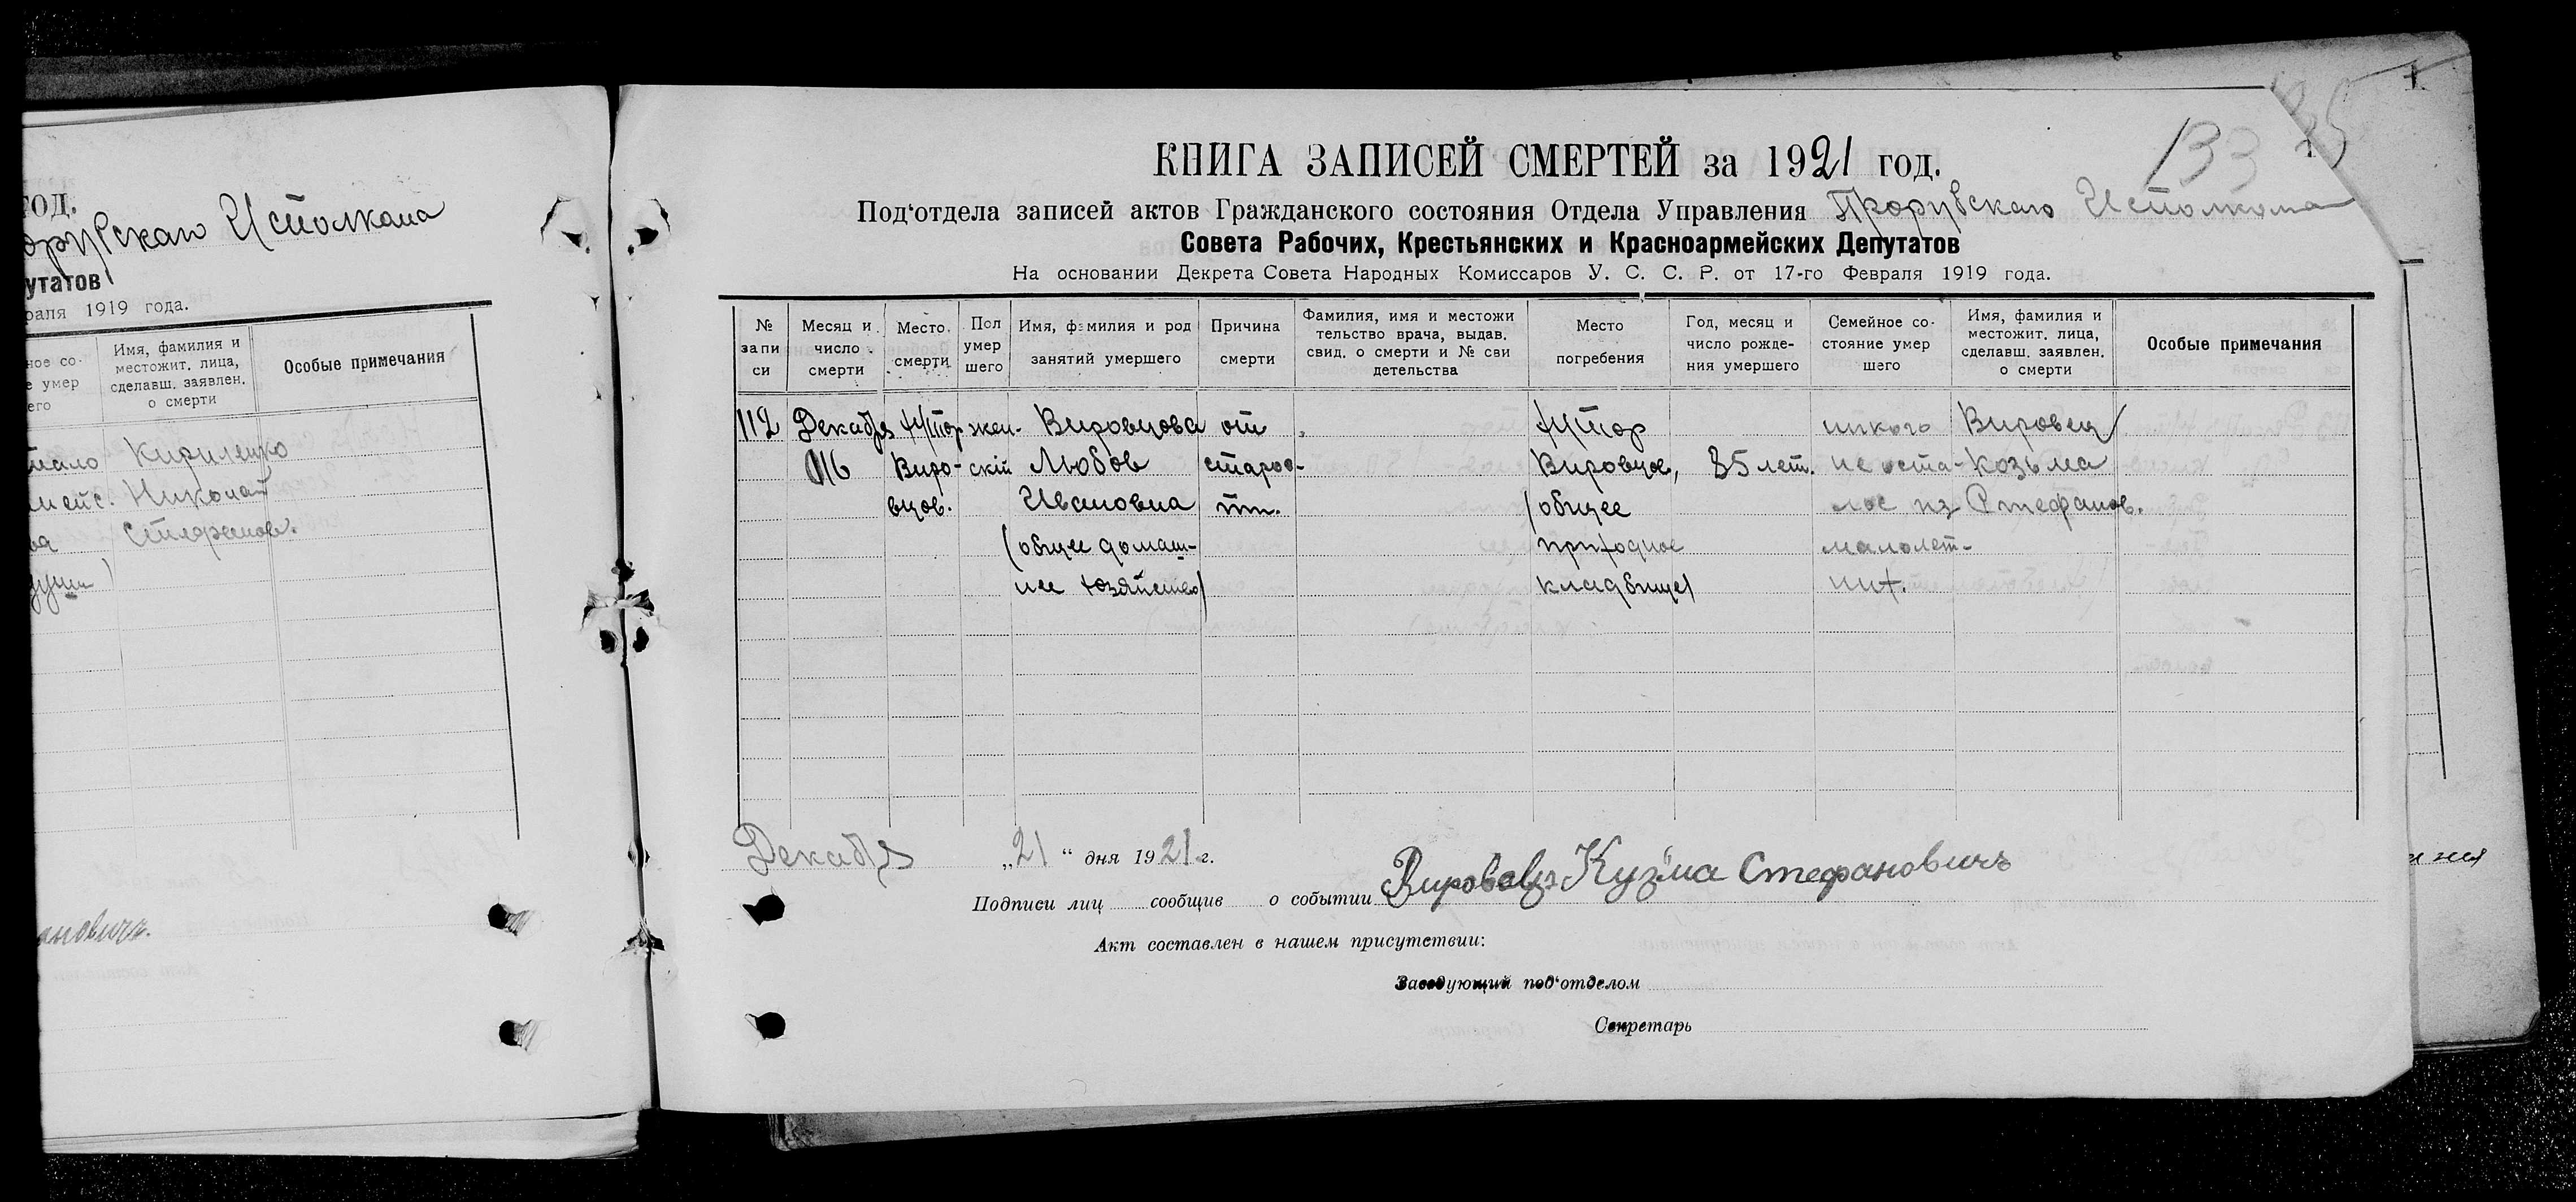 ГОД.
Исполкома
утатов
раля 1919 года.
ное со-
е умер
его
Имя, фамилия и
местожит. лица,
сделавш. заявлен.
о смерти
Особые примечания
Кириленко
Николай
Стефанов.
ановичъ.
133
35
КНИГА ЗАПИСЕЙ СМЕРТЕЙ за 1921 год.
Под'отдела записей актов Гражданского состояния Отдела Управления Прорубскаго Исполкома
Совета Рабочих, Крестьянских и Красноармейских Депутатов
На основании Декрета Совета Народных Комиссаров У. С. С. Р. от 17-го Февраля 1919 года.
№
запи
си
Месяц и
число
смерти
Место
смерти
Пол
умер
шего
Имя, фамилия и род
занятий умершего
Причина
смерти
Фамилия, имя и местожи
тельство врача, выдав.
свид. о смерти и № сви
детельства
Место
погребения
Год, месяц и
число рожде-
ния умершего
Семейное со-
стояние умер
шего
Имя, фамилия и
местожит. лица,
сделавш. заявлен.
о смерти
Особые примечания
112
Декабря
16
Хутор
Виро-
вцов.
жен-
скій
Вировцова
Любов
Ивановна
(общее домаш-
нее хозяйство)
от
старос-
ти.
Хутор
Вировцов,
(общее
приходное
кладбище)
85 лет.
никого
не оста-
лос из
малолет-
них.
Вировец
Козьма
Стефанов.
Декабря „21“ дня 1921 г.
Подписи лиц сообщив о событии Вировецъ Кузьма Стефановичъ
Акт составлен в нашем присутствии:
Заведующий под'отделом
Секретарь